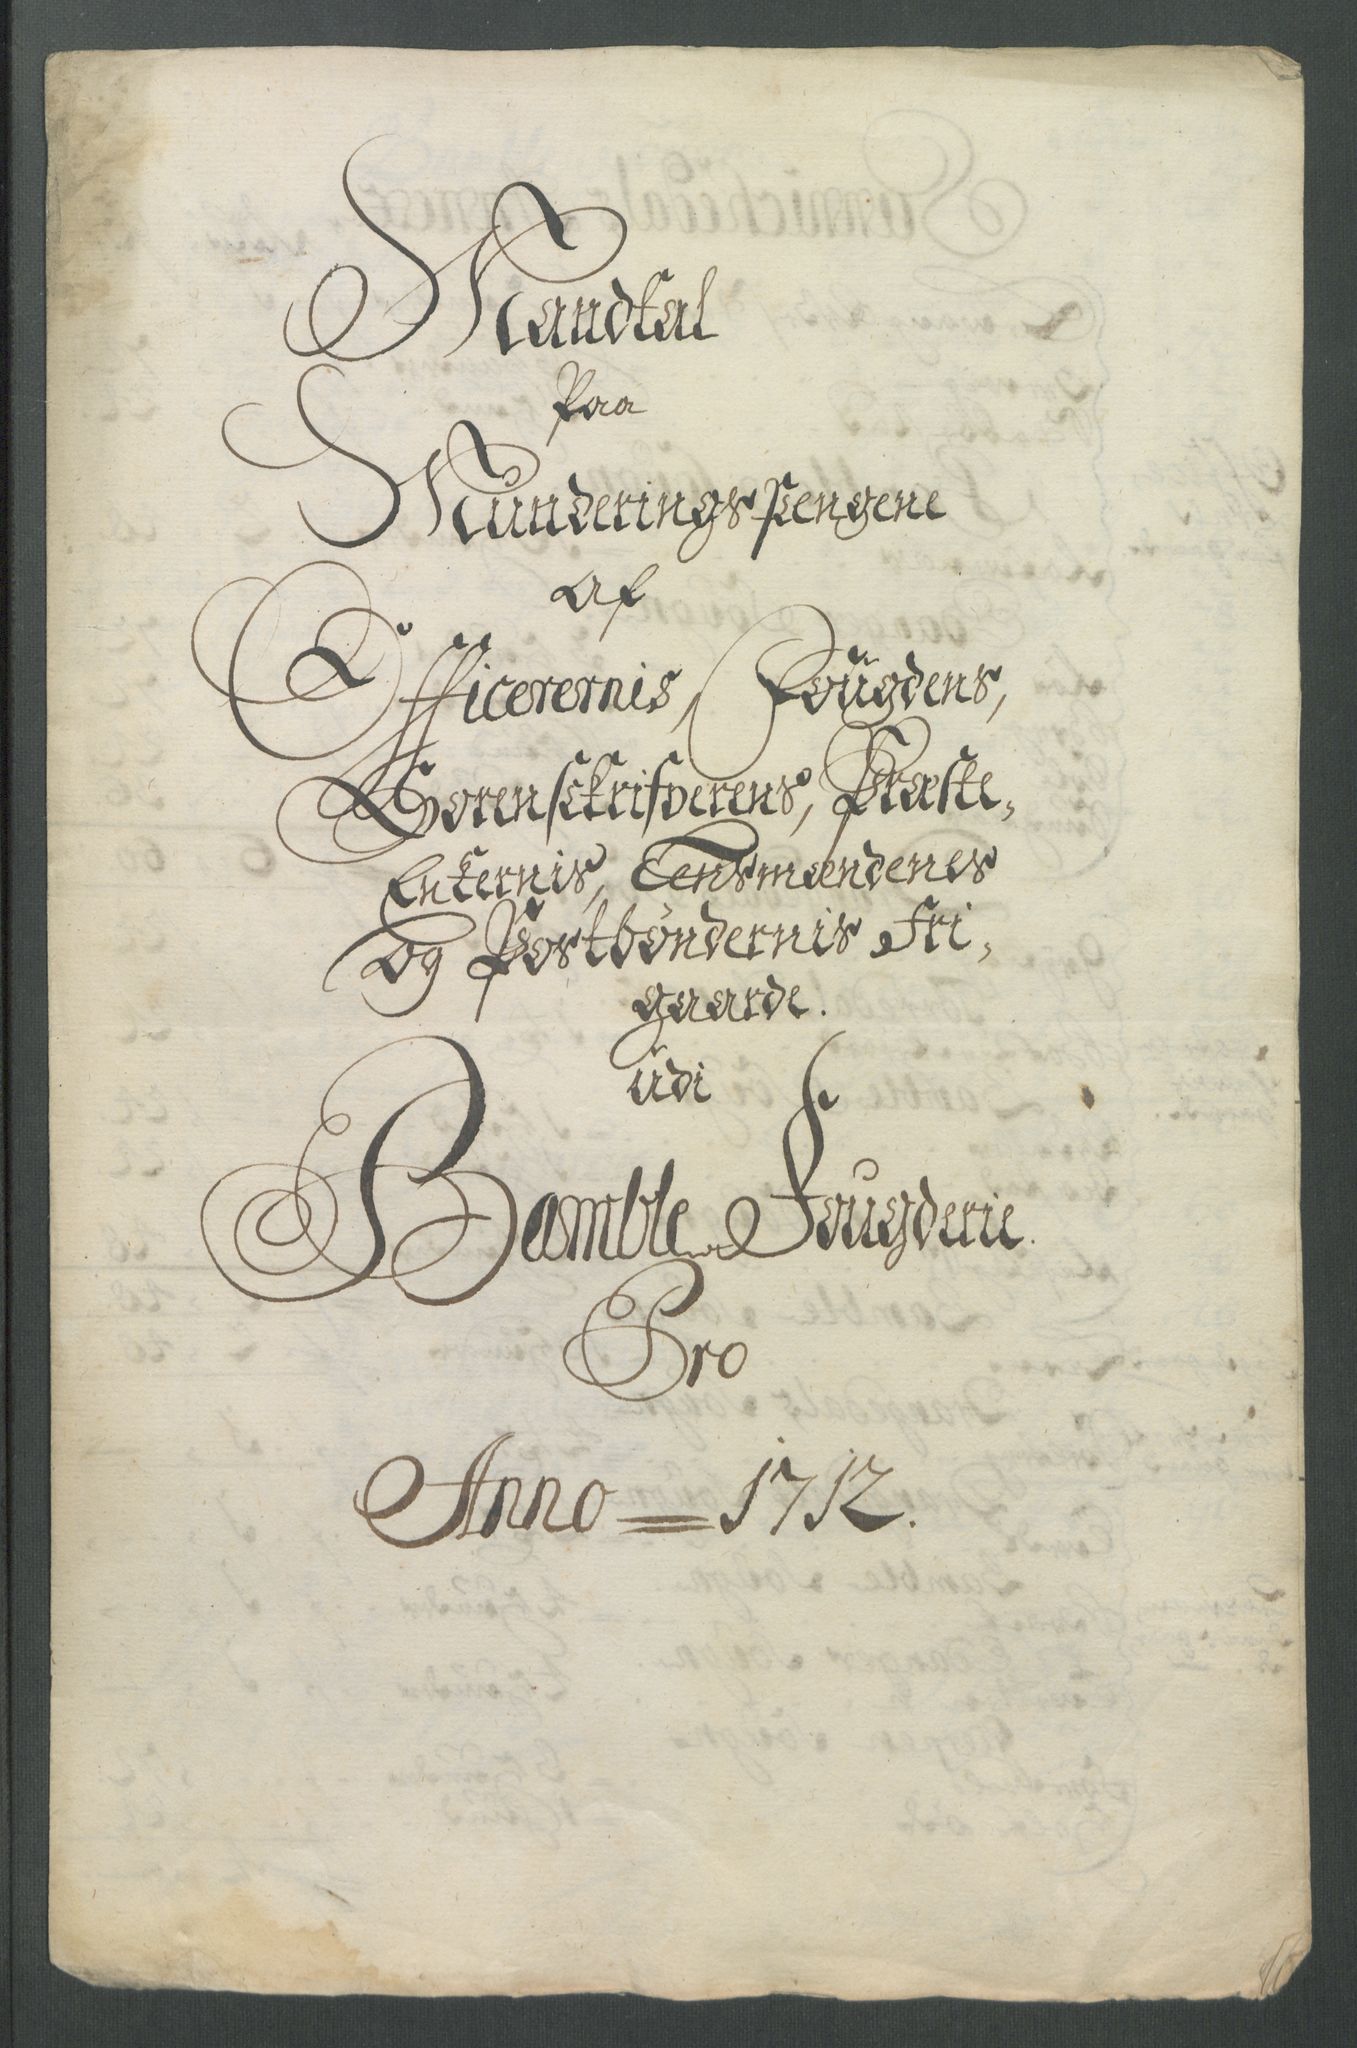 Mandtal
Paa
Munderings Pengene
af
Officerernis, Fougdens,
Sorenskrifverens, Præste-
Enkernis, Lensmændenes
og Postbøndernis Fri-
gaarde.
udi
Bamble Fougderie.
Pro
Anno = 1712.